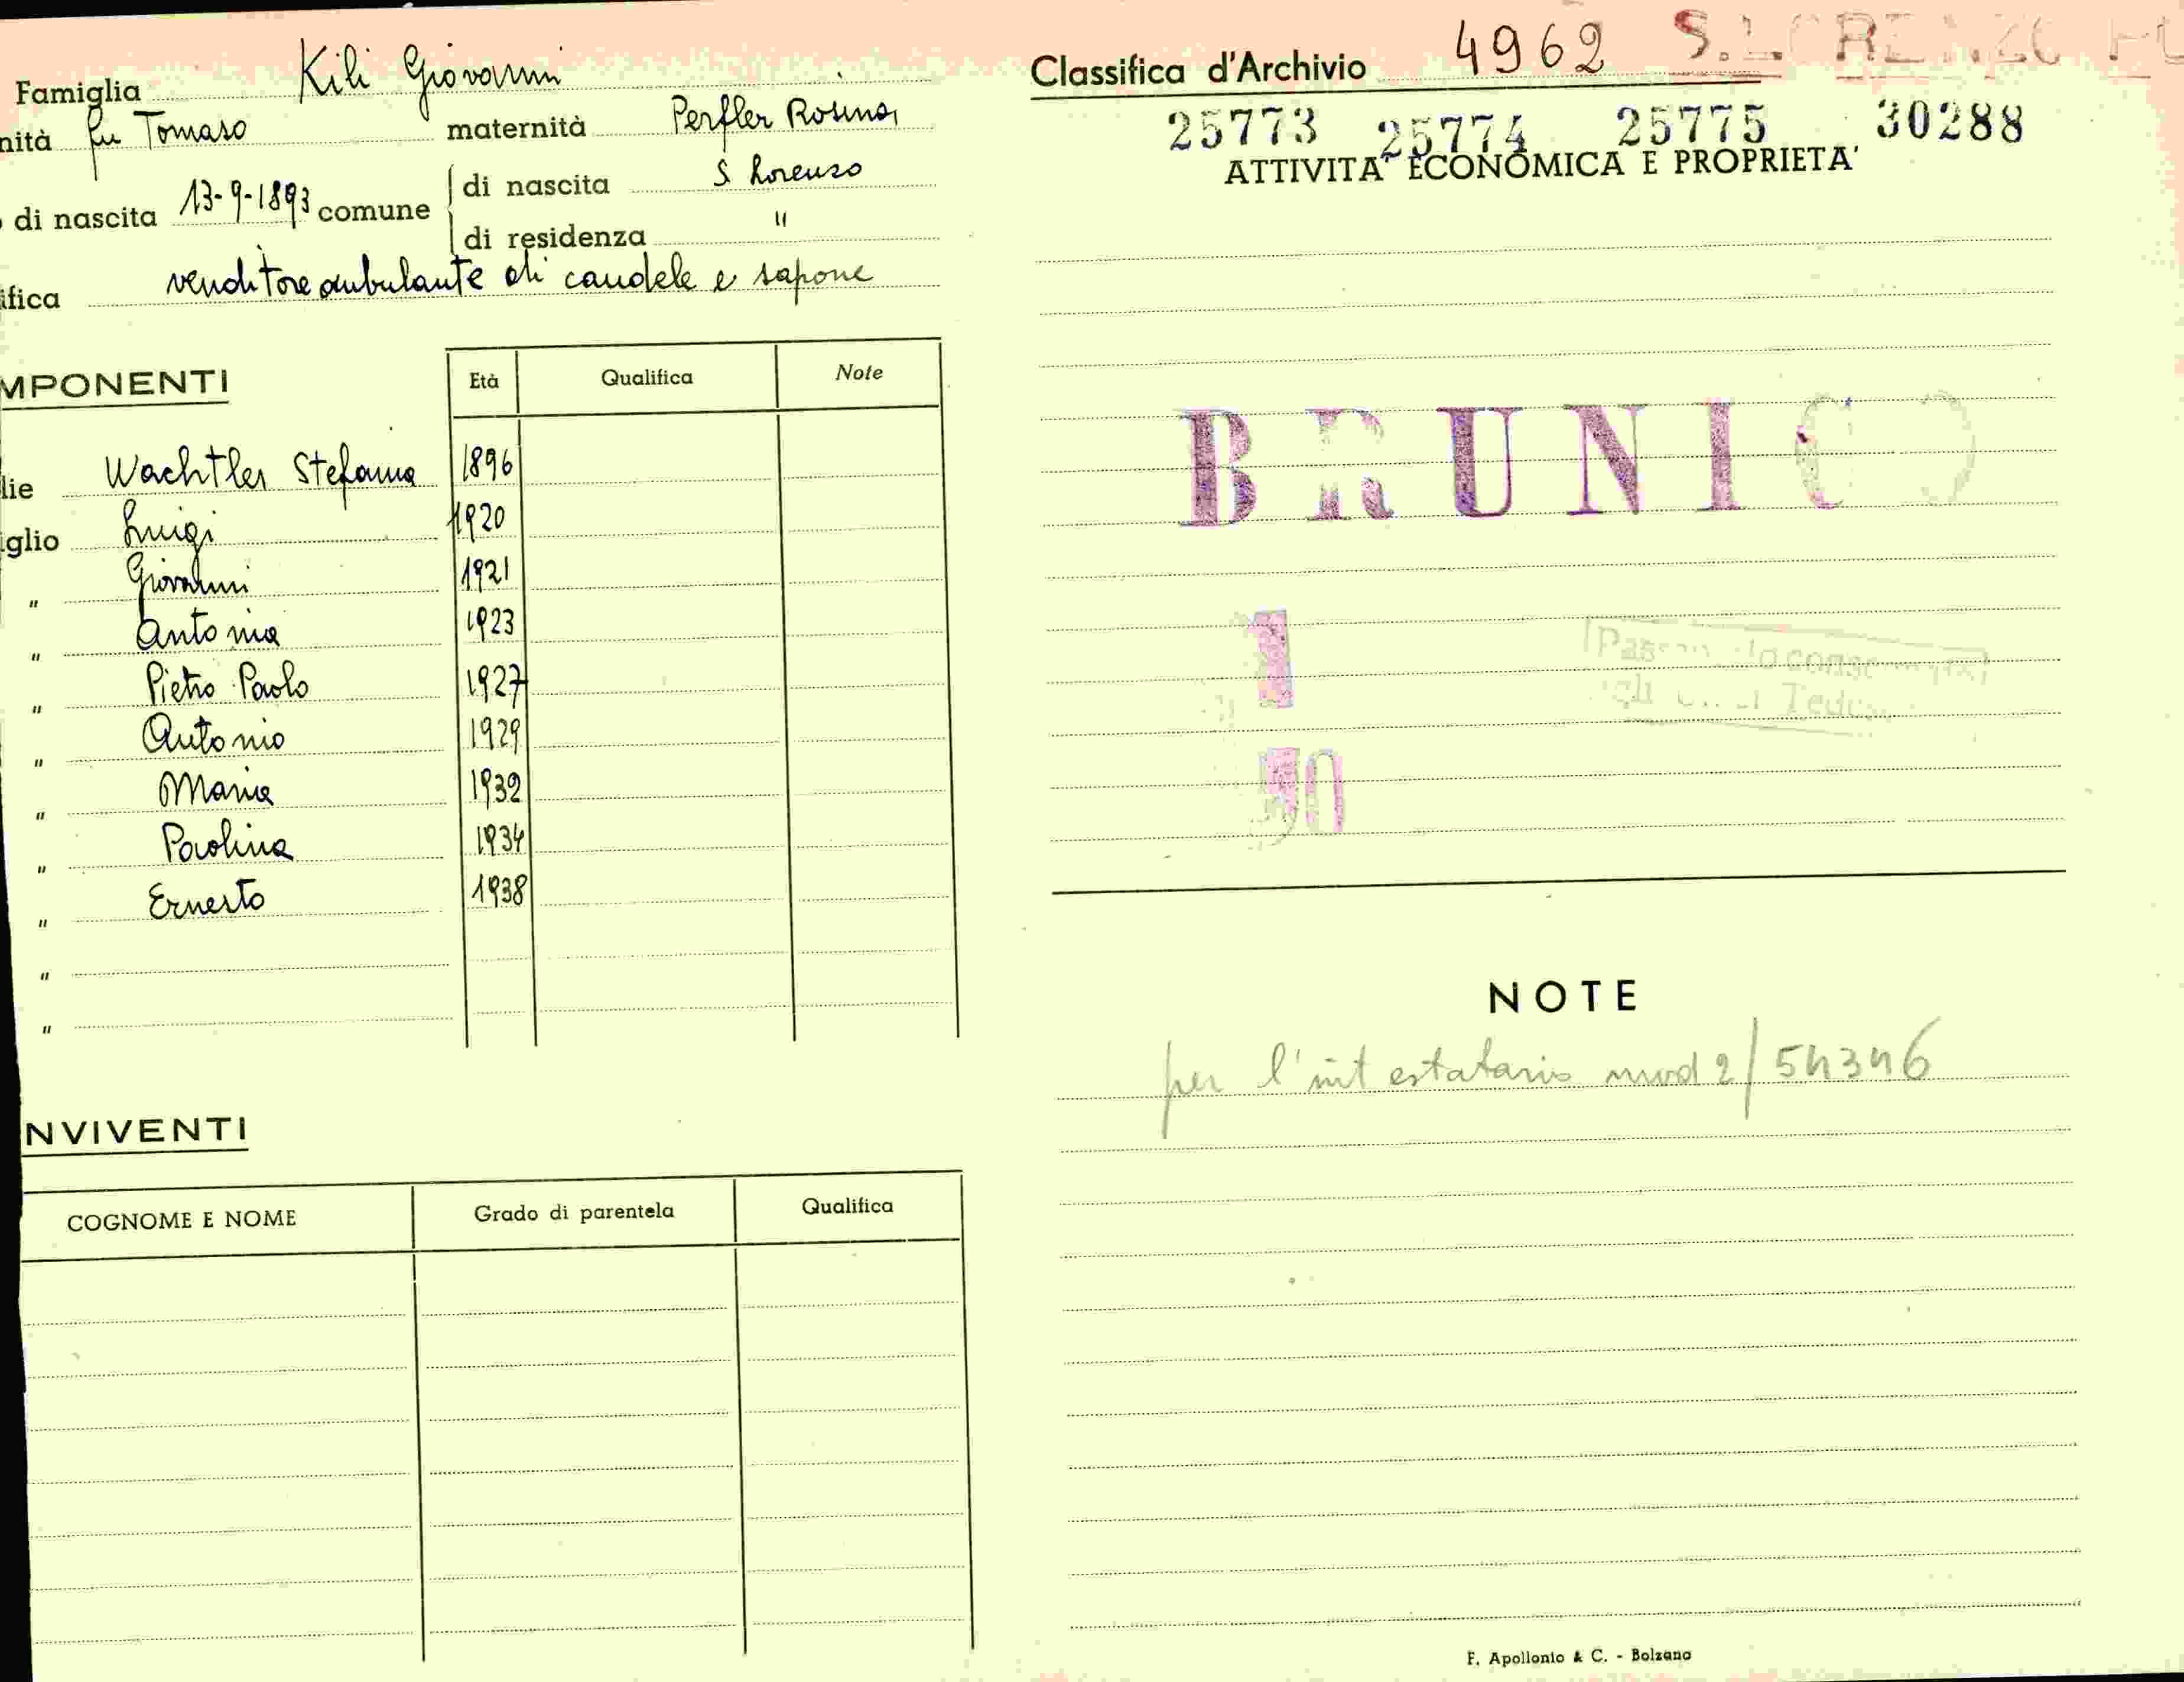 Famiglia Kili Giovanni
nità fu Tomaso maternità Perfler Rosina
di nascita 13-9-1893 comune di nascita S. Lorenzo
di residenza "
ifica venditore ambulante di candele e sapone
MPONENTI Età Qualifica Note
lie Wachtler Stefania 1896
iglio Luigi 1920
" Giovanni 1921
" Antonia 1923
" Pietro Paolo 1927
" Antonio 1929
" Maria 1932
" Paolina 1934
" Ernesto 1938
"
"
NVIVENTI
COGNOME E NOME Grado di parentela Qualifica
Classifica d'Archivio 4962 S. LORENZO
25773 25774 25775 30288
ATTIVITA' ECONOMICA E PROPRIETA'
BRUNICO
1
50
NOTE
per l'intestatario mod 2/54346
F. Apollonio & C. - Bolzano